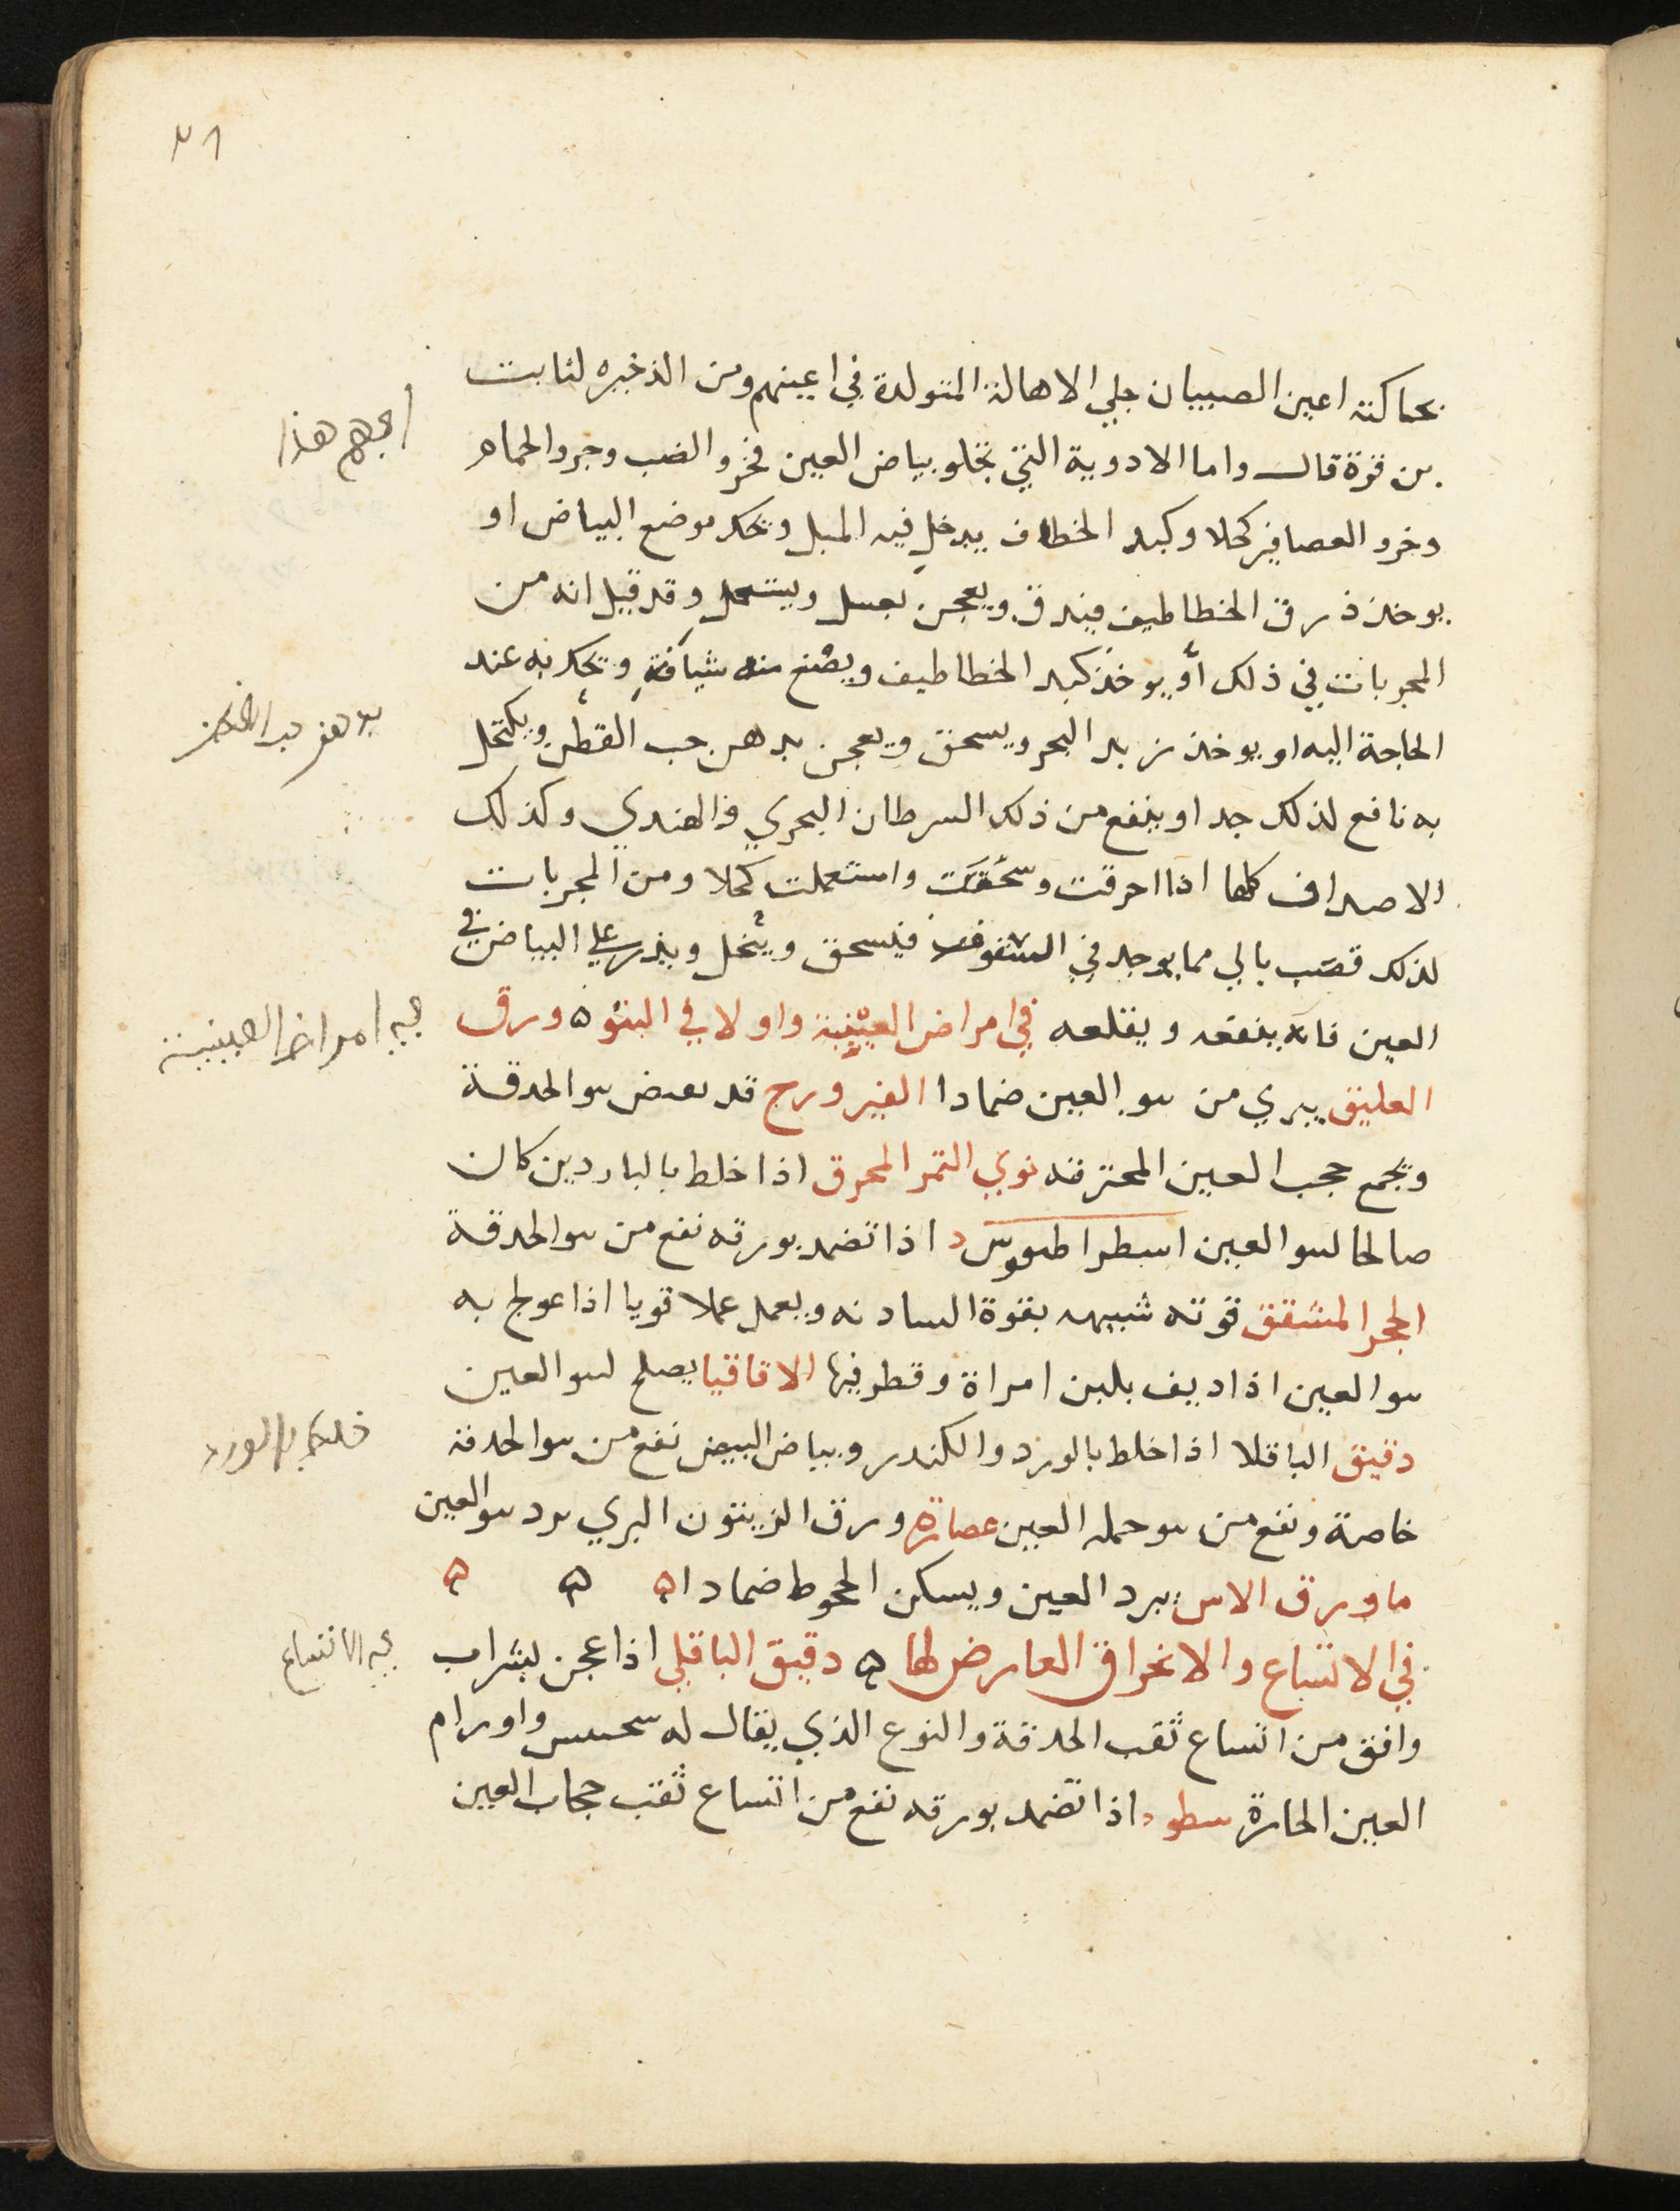 ٣١
بحماكته اعين الصبيان جلي الاهالة المتولدة في اعينهم ومن الذخيره لثابت
بن قرة قال واما الادوية التي تجلو بياض العين فخرو الضب وجرو الحمام
وخرو العصافير كحلا وكبد الخطاف يدخل فيه الميل ويحك موضع البياض او
يوخذ ذرق الخطاطيف فيدق ويعجن بعسل ويستعمل وقد قيل انه من
المجربات في ذلك او يوخذ كبد الخطاطيف ويصنع منه شيافة ويحك به عند
الحاجة اليه او يوخذ زبد البحر ويسحق ويعجن بدهن حب القطن ويكتحل
به نافع لذلك جدا وينفع من ذلك السرطان البحري والهندي وكذلك
الاصداف كلها اذا احرقت وسحقت واستعملت كحلا ومن المجربات
لذلك قصب بالي مما يوجد في السقوف فيسحق وينخل ويذر على البياض في
العين فانه ينفعه ويقلعه في امراض العينية واولا في النتو ه ورق
العليق يبري من نتو العين ضمادا الفيروزج قد يقبض نتو الحدقة
ويجمع حجب العين المحترقه نوي التمر المحرق اذا خلط بالباردين كان
صالحا لنتو العين اسطراطيقوس اذا تضمد بورقه نفع من نتو الحدقة
الحجر المشقق قوته شبيهه بقوة السادنه ويعمل عملا قويا اذا عولج به
نتو العين اذا ديف بلبن امراة وقطر فيها الاقاقيا يصلح لنتو العين
دقيق الباقلا اذا خلط بالورد والكندر وبياض البيض نفع من نتو الحدقة
خاصة ونفع من نتو جمله العين عصارة ورق الزيتون البري يرد نتو العين
ما ورق الاس يبرد العين ويسكن الجحوظ ضمادا ه ه ه
في الاتساع والانخراق العارض لها ه دقيق الباقلي اذا عجن بشراب
وافق من اتساع ثقب الحدقة والنوع الذي يقال له واورام
العين الحارة اذا تضمد بورقه نفع من اتساع ثقب حجاب العين
هذا
في امراض العينية
خلط بالورد
في الاتساع